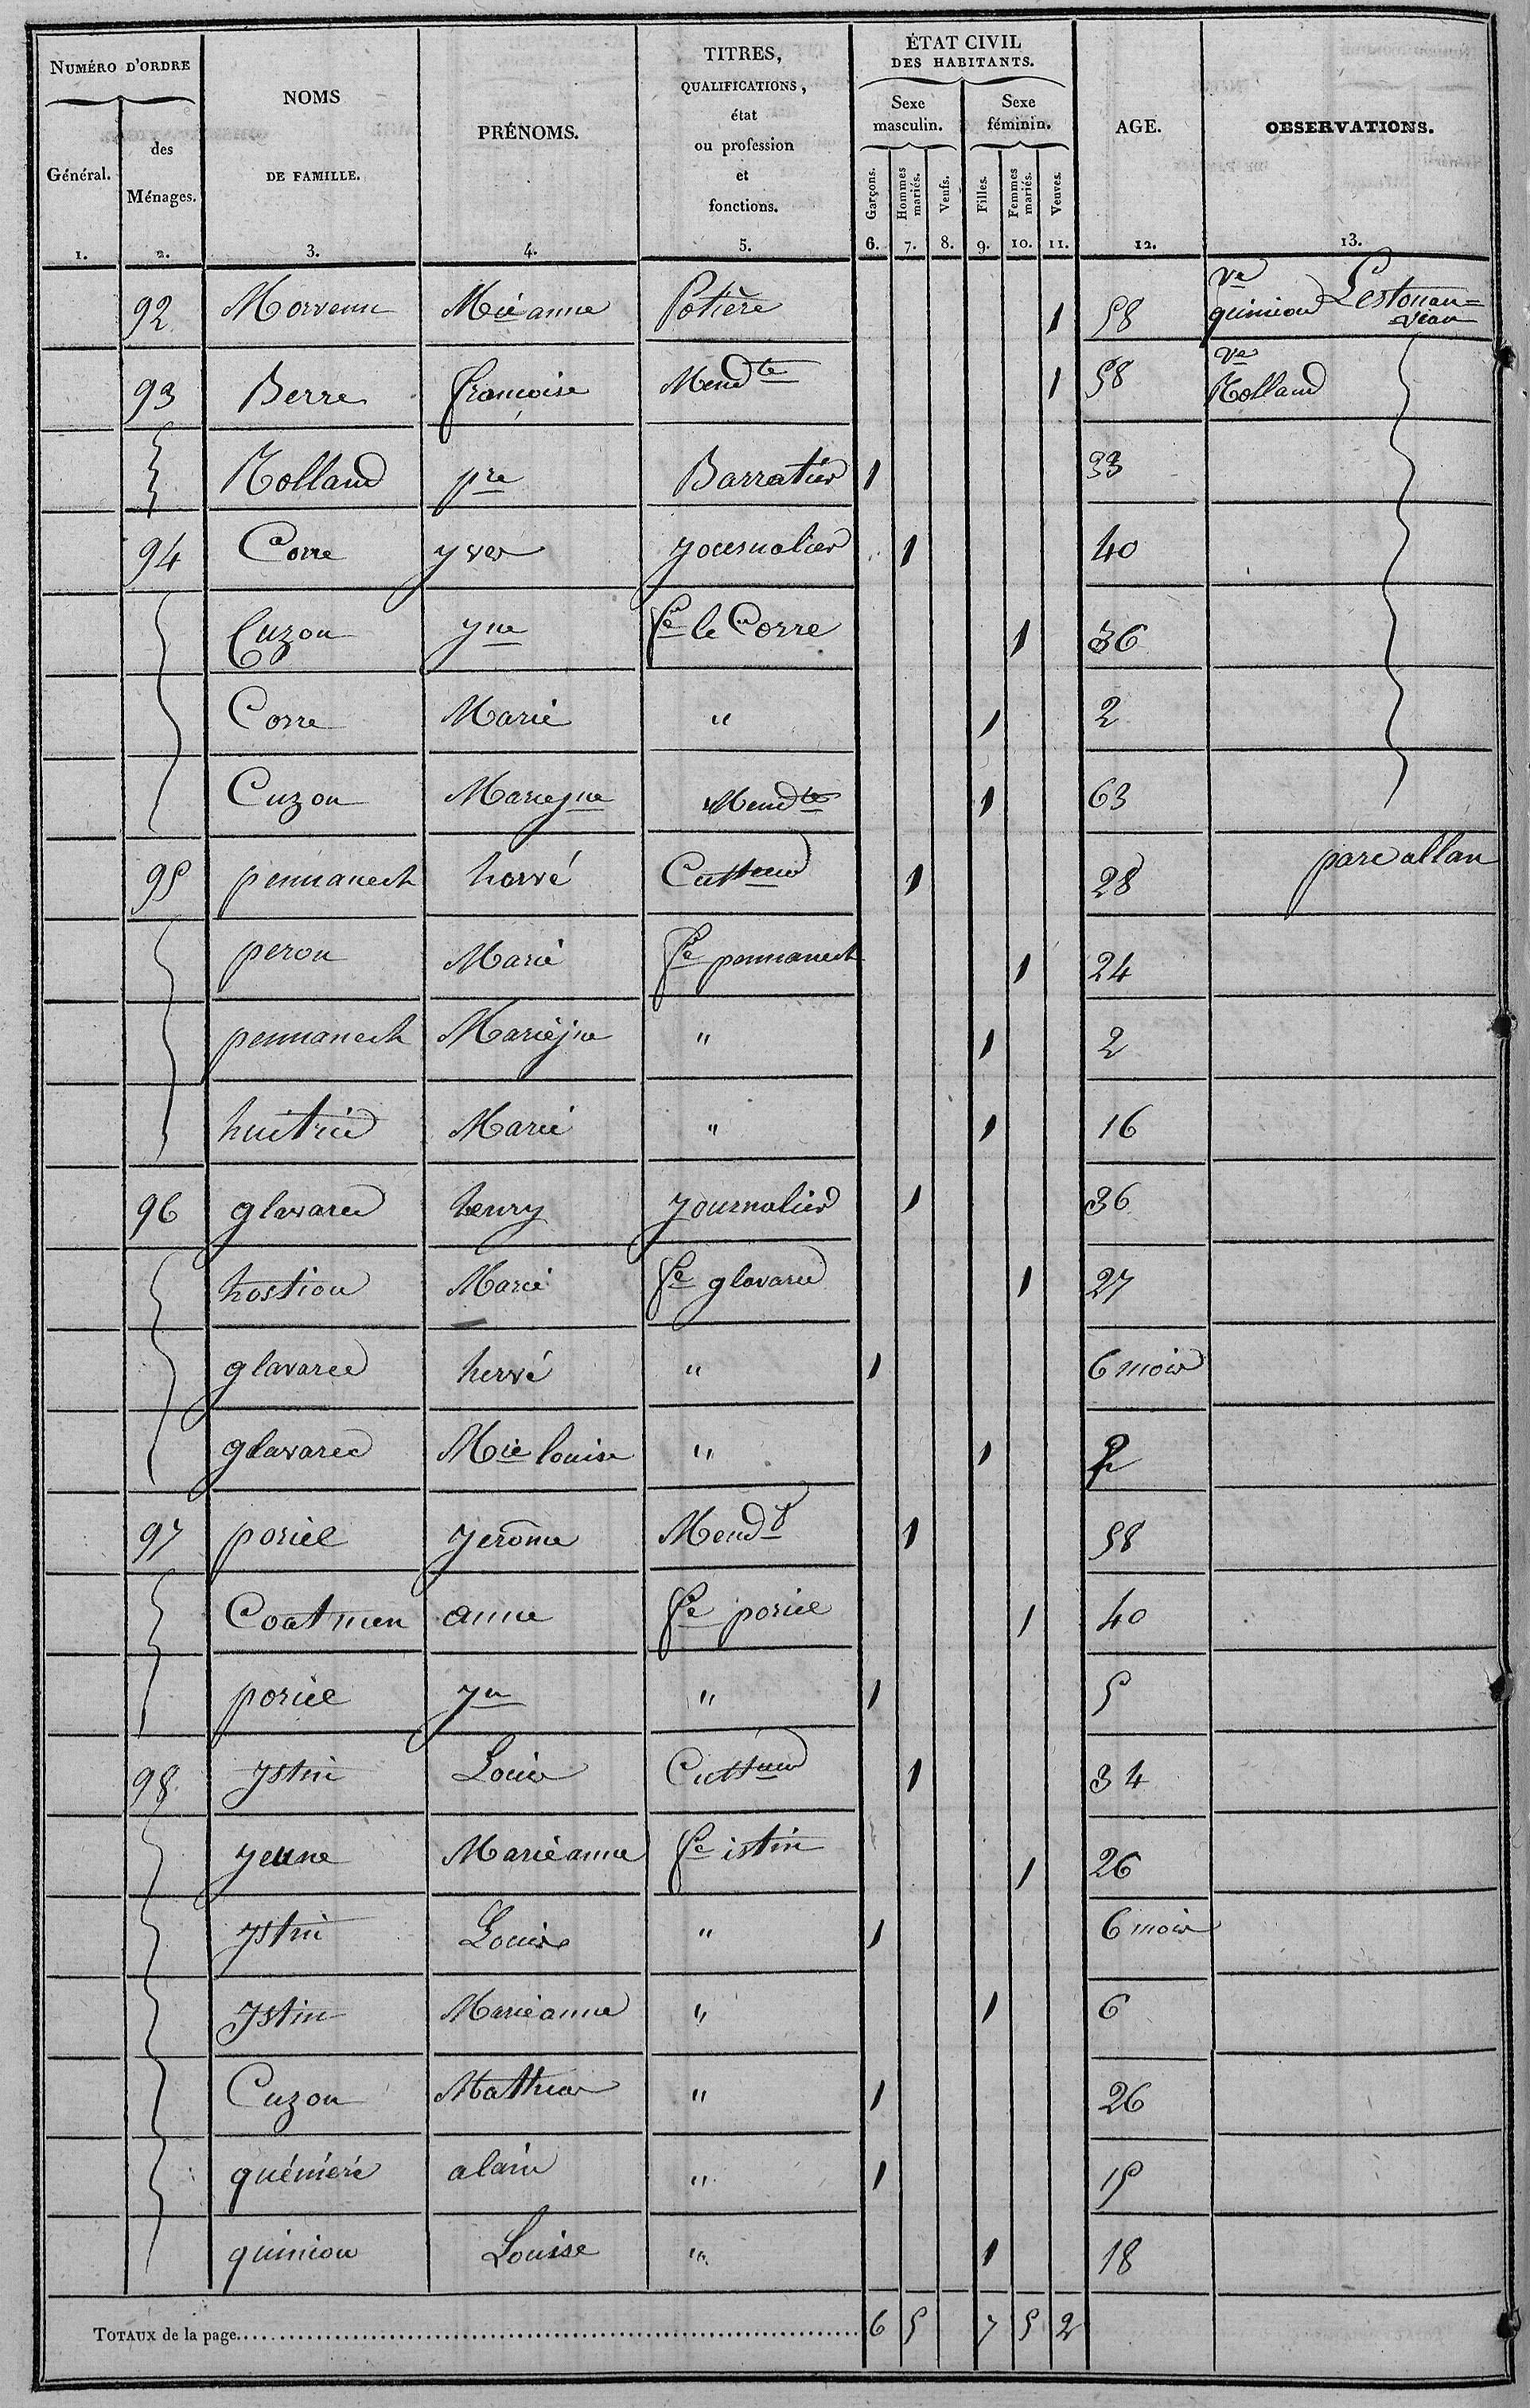 NUMÉRO D'ORDRE
Général.
des Ménages.
NOMS DE FAMILLE.
PRÉNOMS.
TITRES, QUALIFICATIONS, état ou profession et fonctions.
ÉTAT CIVIL DES HABITANTS.
Sexe masculin.
Sexe féminin.
Garçons.
Hommes mariés.
Veufs.
Filles.
Femmes mariés.
Veuves.
AGE.
OBSERVATIONS.
1. 2. 3. 4. 5. 6. 7. 8. 9. 10. 11. 12. 13.
92 Morvenn Mie anne Potière 1 58 ve quiniou Lestouan=vian
93 Berre françoise Mendte 1 58 ve Rolland
Rolland pre Barratier 1 33
94 Corre yves journalier 1 40
Cuzon jne fe le Corre 1 36
Corre Marie " 1 2
Cuzon Marie jne Mendte 1 63
95 pennanech hervé Cultteur 1 28 parc allan
peron Marie fe pennanech 1 24
pennanech Marie jne " 1 2
huitric Marie " 1 16
96 glavarec henry journalier 1 36
hostiou Marie fe glavarec 1 27
glavarec hervé " 1 6 mois
glavarec Mie louise " 1 2
97 poriel jerome Mendt 1 58
Coatmen anne fe poriel 1 40
poriel jn " 1 5
98 ystin Louis Cultteur 1 34
jeune Marie anne fe istin 1 26
ystin Louis " 1 6 mois
ystin Marie anne " 1 6
Cuzon Mathias " 1 26
quéméré alain " 1 15
quiniou Louise " 1 18
TOTAUX de la page 6 5 7 5 2